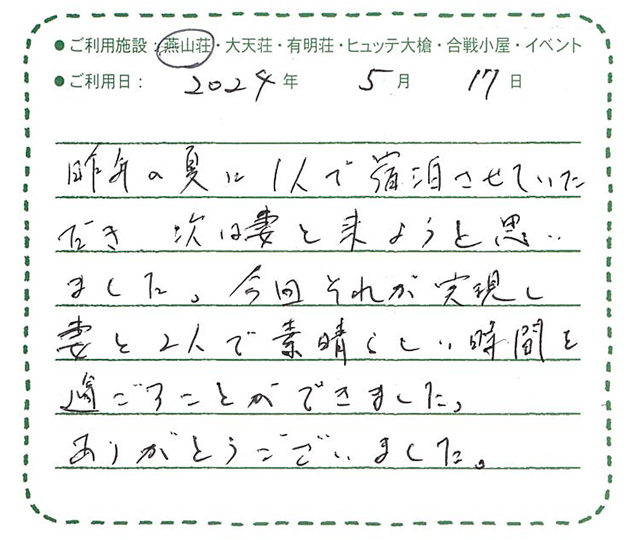 ●ご利用施設：燕山荘・大天荘・有明荘・ヒュッテ大槍・合戦小屋・イベント
●ご利用日： 2024年 5月 17日
昨年の夏に1人で宿泊させていた
だき 次は妻と来ようと思い
ました。今回それが実現し
妻と2人で素晴らしい時間を
過ごすことができました。
ありがとうございました。